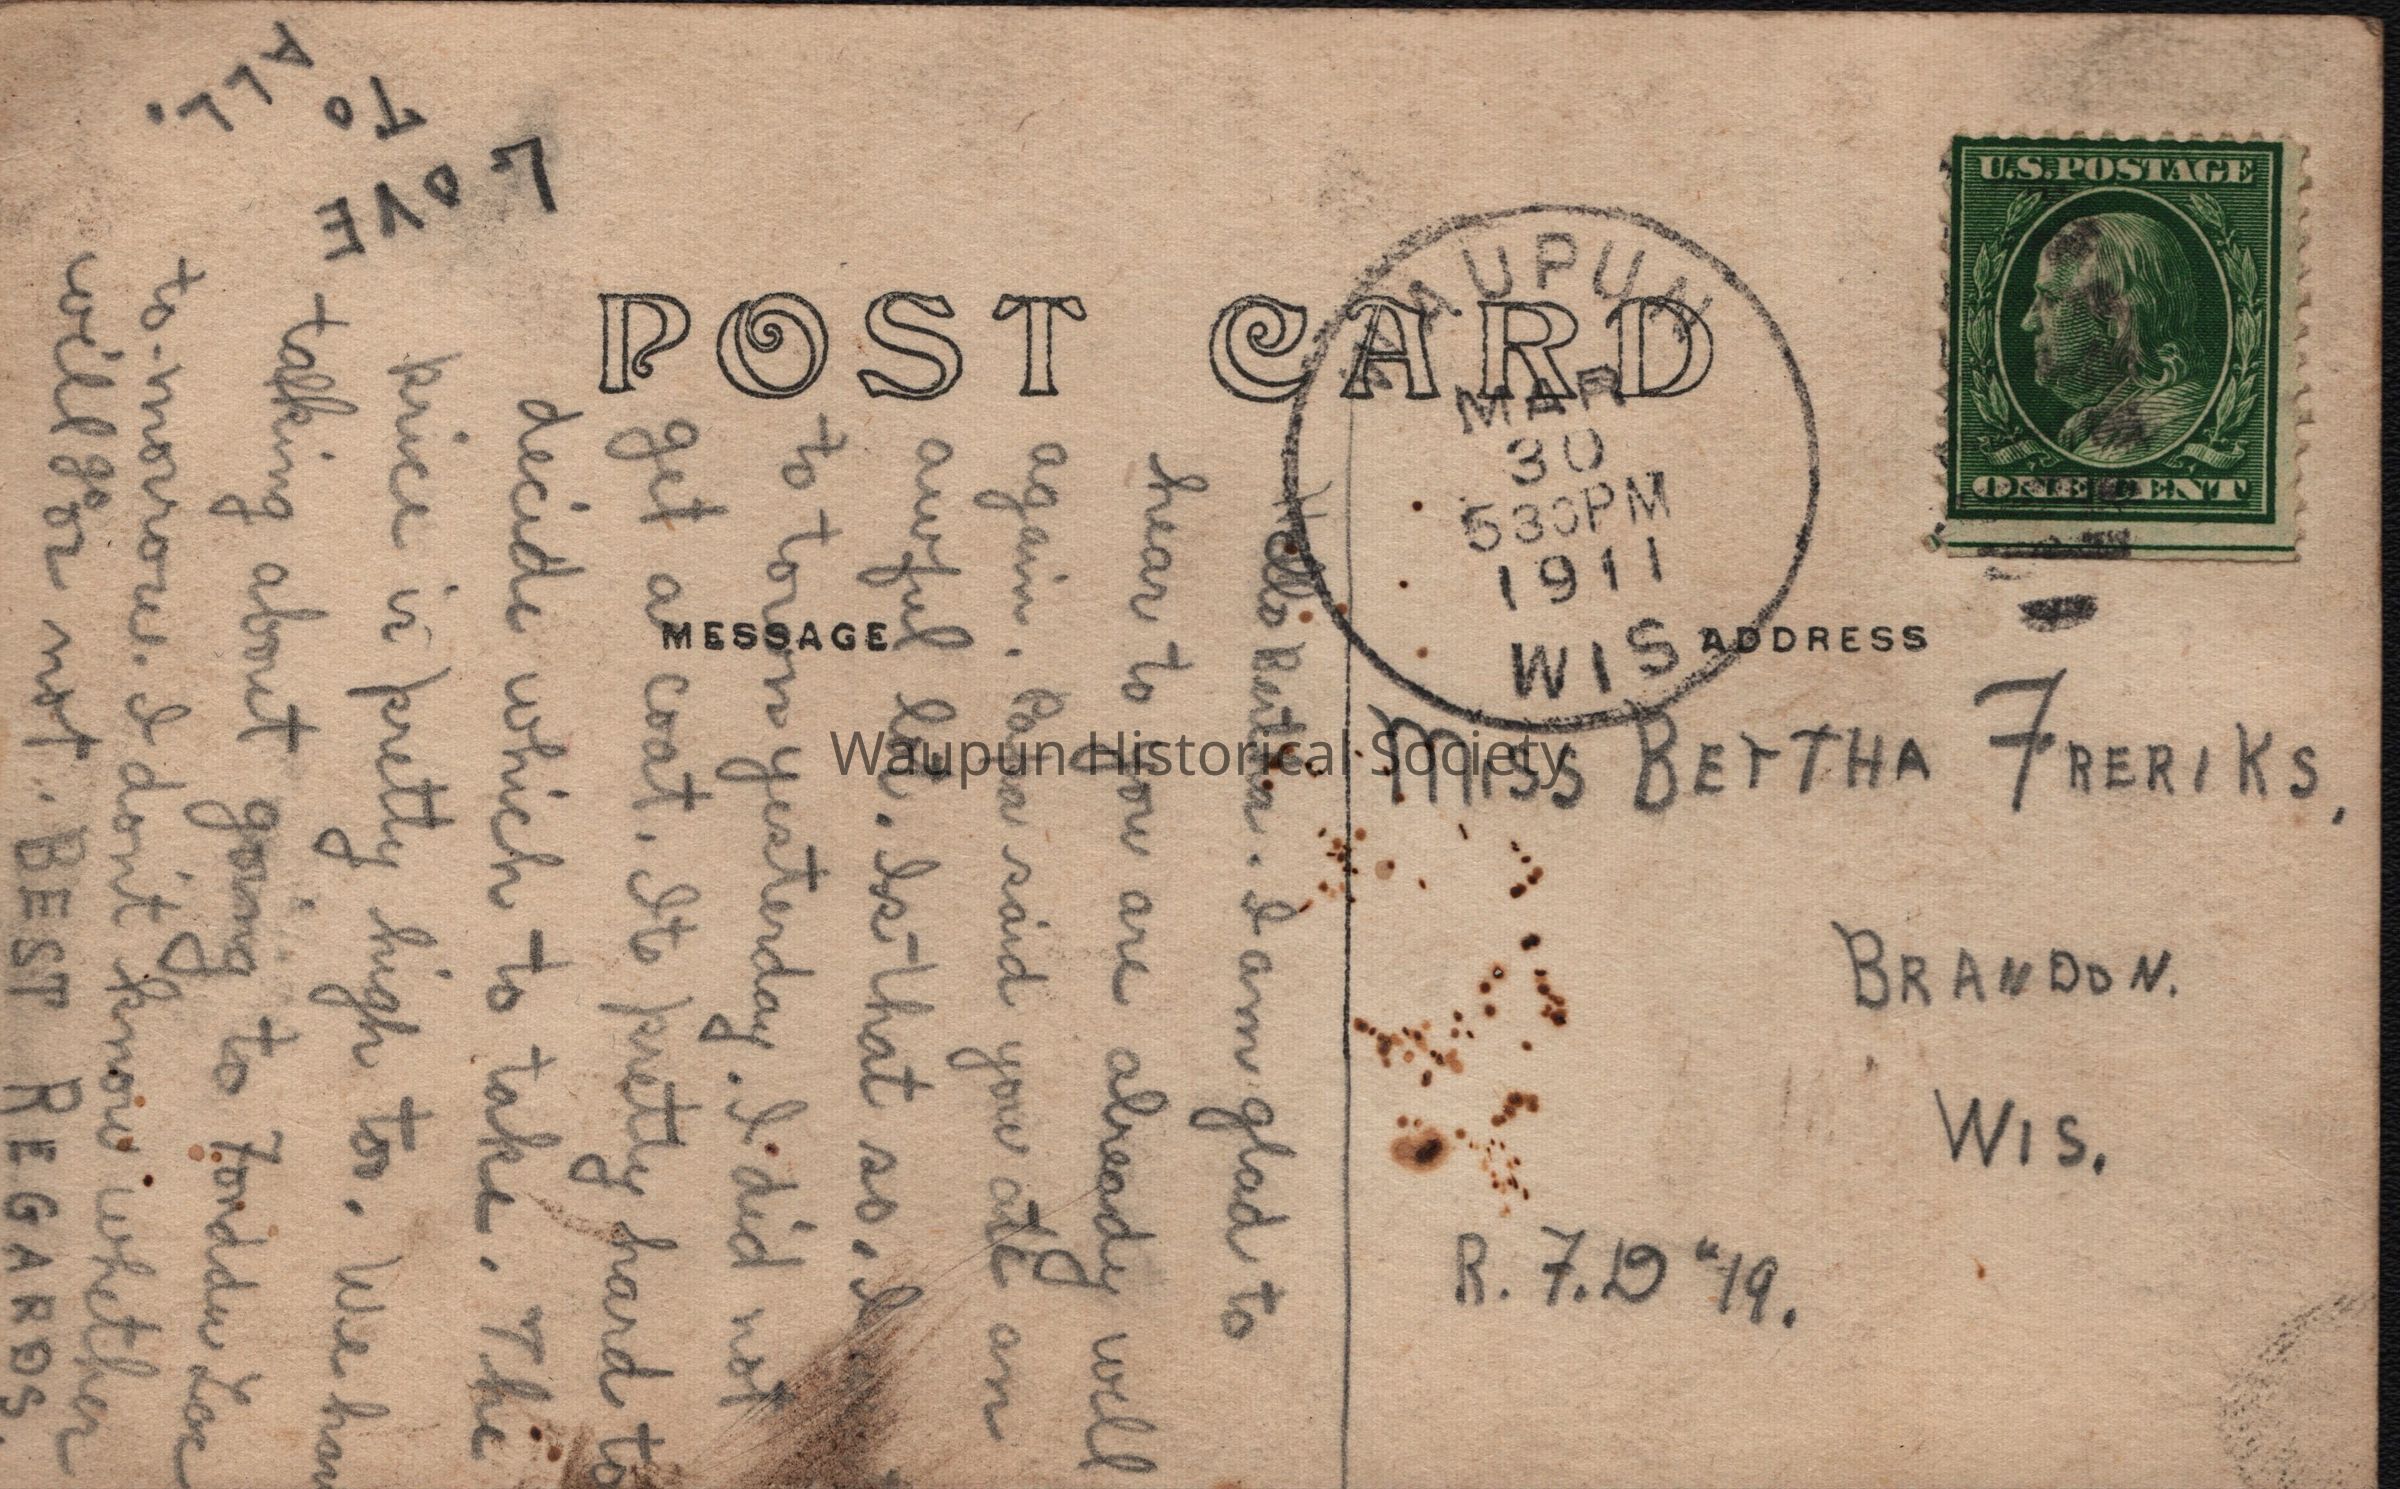 POST CARD
WAUPUN
MAR
30
530PM
1911
WIS
U.S. POSTAGE
ONE CENT
MESSAGE
ADDRESS
Hello Bertha. I am glad to
hear to you are already well
again. Papa said you ate an
awful lot. Is that so. I
to town yesterday. I did not
get a coat. Its pretty hard to
decide which to take. The
price is pretty high too. We have
talking about going to Fondu Lac
to-morrow. I don't know whether
will go or not. BEST REGARDS.
LOVE
TO
ALL.
MISS BERTHA FRERIKS.
BRANDON.
WIS.
R. F. D "19.
Waupun Historical Society